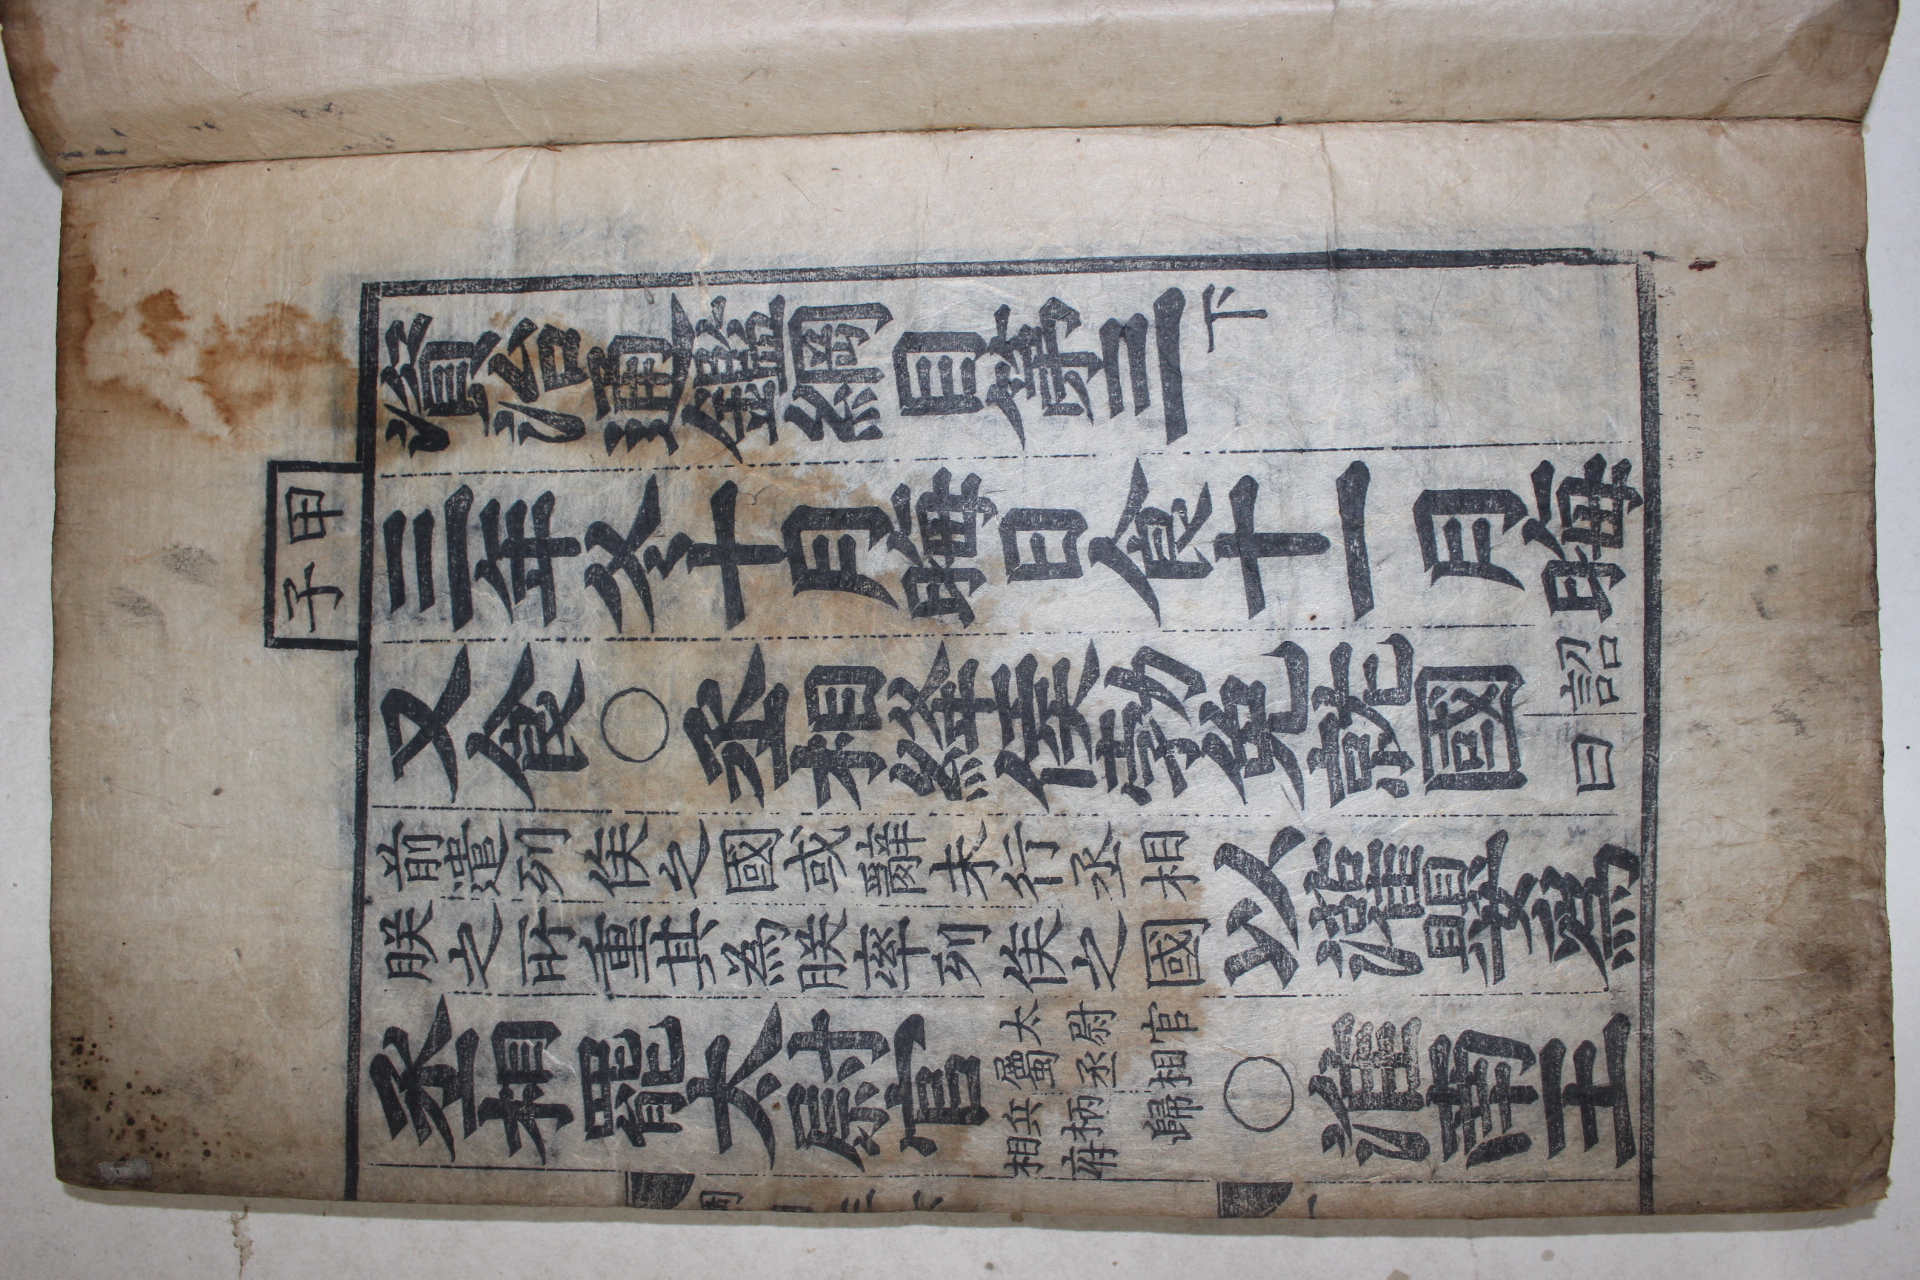 甲子
資治通鑑綱目第三下
三年冬十月晦日食十一月晦
又食○丞相絳侯勃免就國詔曰
前遣列侯之國或辭未行丞相
朕之所重其為朕率列侯之國以灌嬰爲
丞相罷太尉官太尉官屬丞相兵柄歸相府○淮南王